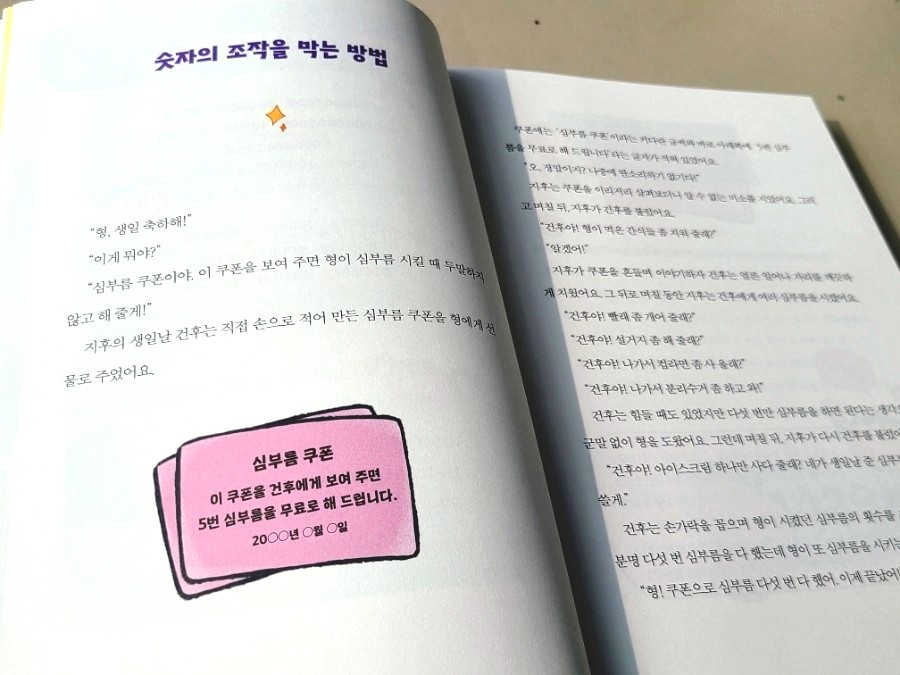 숫자의 조작을 막는 방법
“형, 생일 축하해!”
“이게 뭐야?”
“심부름 쿠폰이야. 이 쿠폰을 보여 주면 형이 심부름 시킬 때 두말하지
않고 해 줄게!”
지후의 생일날 건후는 직접 손으로 적어 만든 심부름 쿠폰을 형에게 선
물로 주었어요.
심부름 쿠폰
이 쿠폰을 건후에게 보여 주면
5번 심부름을 무료로 해 드립니다.
20○○년 ○월 ○일
쿠폰에는 ‘심부름 쿠폰’이라는 커다란 글씨와 바로 아래쪽에 ‘5번 심부
름을 무료로 해 드립니다’라는 글자가 적혀 있었어요.
“오, 정말이지? 나중에 딴소리하기 없기다!”
지후는 쿠폰을 이리저리 살펴보더니 알 수 없는 미소를 지었어요. 그리
고 며칠 뒤, 지후가 건후를 불렀어요.
“건후야! 형이 먹은 간식들 좀 치워 줄래?”
“알겠어!”
지후가 쿠폰을 흔들며 이야기하자 건후는 얼른 일어나 자리를 깨끗하
게 치웠어요. 그 뒤로 며칠 동안 지후는 건후에게 여러 심부름을 시켰어요.
“건후야! 빨래 좀 개어 줄래?”
“건후야! 설거지 좀 해 줄래?”
“건후야! 나가서 컵라면 좀 사 올래?”
“건후야! 나가서 분리수거 좀 하고 와!”
건후는 힘들 때도 있었지만 다섯 번만 심부름을 하면 된다는 생각
군말 없이 형을 도왔어요. 그런데 며칠 뒤, 지후가 다시 건후를 불렀어
“건후야! 아이스크림 하나만 사다 줄래? 네가 생일날 준 심부
쓸게.”
건후는 손가락을 꼽으며 형이 시켰던 심부름의 횟수를
분명 다섯 번 심부름을 다 했는데 형이 또 심부름을 시키는
“형! 쿠폰으로 심부름 다섯 번 다 했어. 이제 끝났어